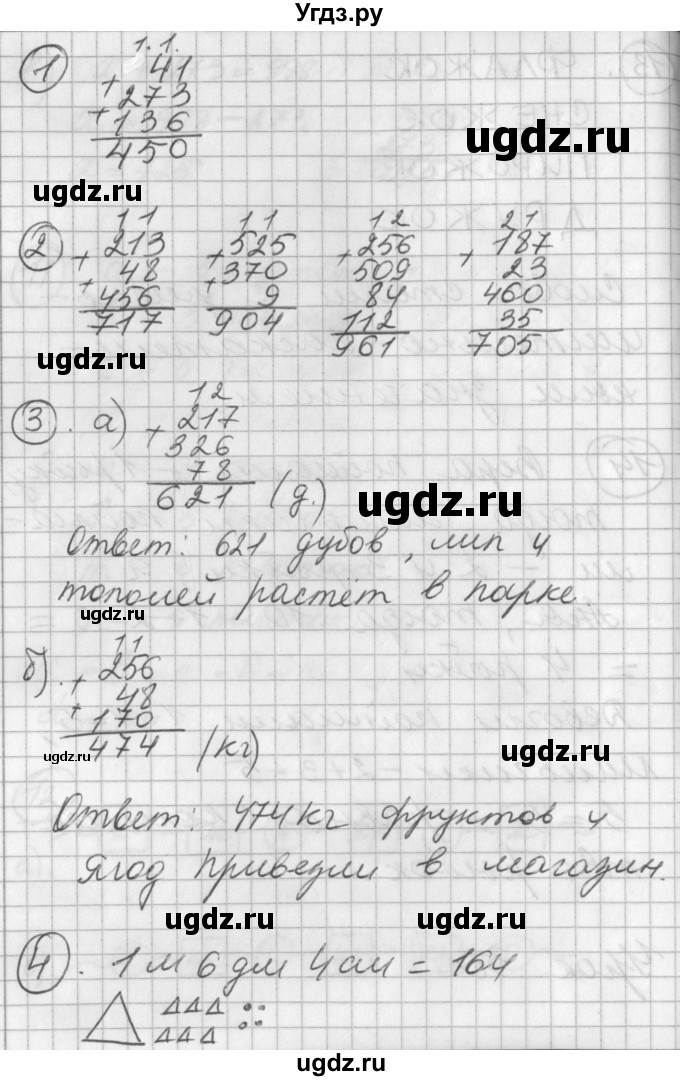 Угдз.ру
1
1.1.
+ 41
+ 273
136
450
ugdz.ru
ugdz.ru
2
11 11 12 21
+ 213 + 525 + 256 + 187
+ 48 + 370 509 23
456 9 84 460
717 904 112 35
961 705
ugdz.ru
3. а)
12
+ 217
326
78
621 (д.)
ugdz.ru
Ответ: 621 дубов, лип и
тополей растёт в парке.
ugdz.ru
б).
11
+ 256
+ 48
170
474 (кг)
ugdz.ru
ugdz.ru
Ответ: 474 кг фруктов и
ягод привезли в магазин.
ugdz.ru
ugdz.ru
4. 1 м 6 дм 4 см = 164
ugdz.ru